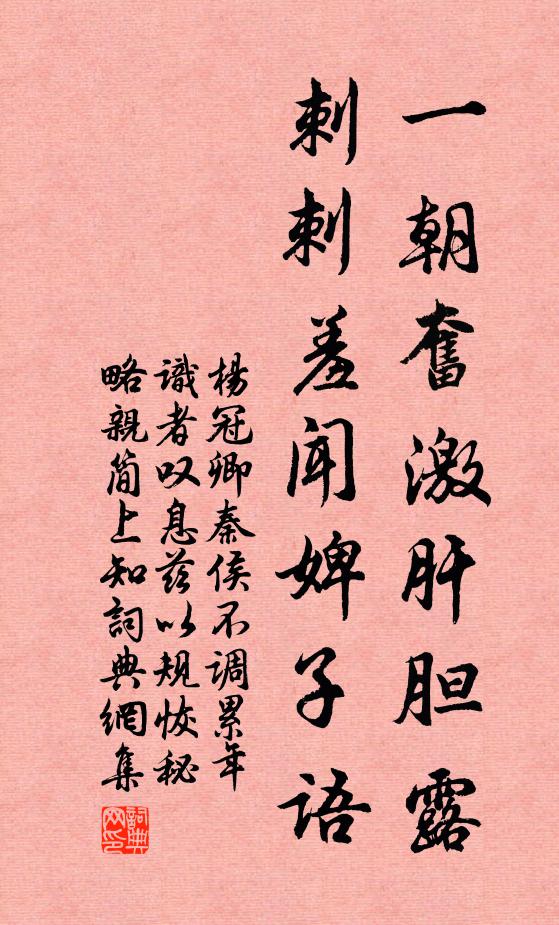 一朝奮激肝胆露
刺刺羞聞婢子語
楊冠卿秦侯不调累年
識者叹息茲以規恢秘
略親简上知詞典網集
詞典
网印